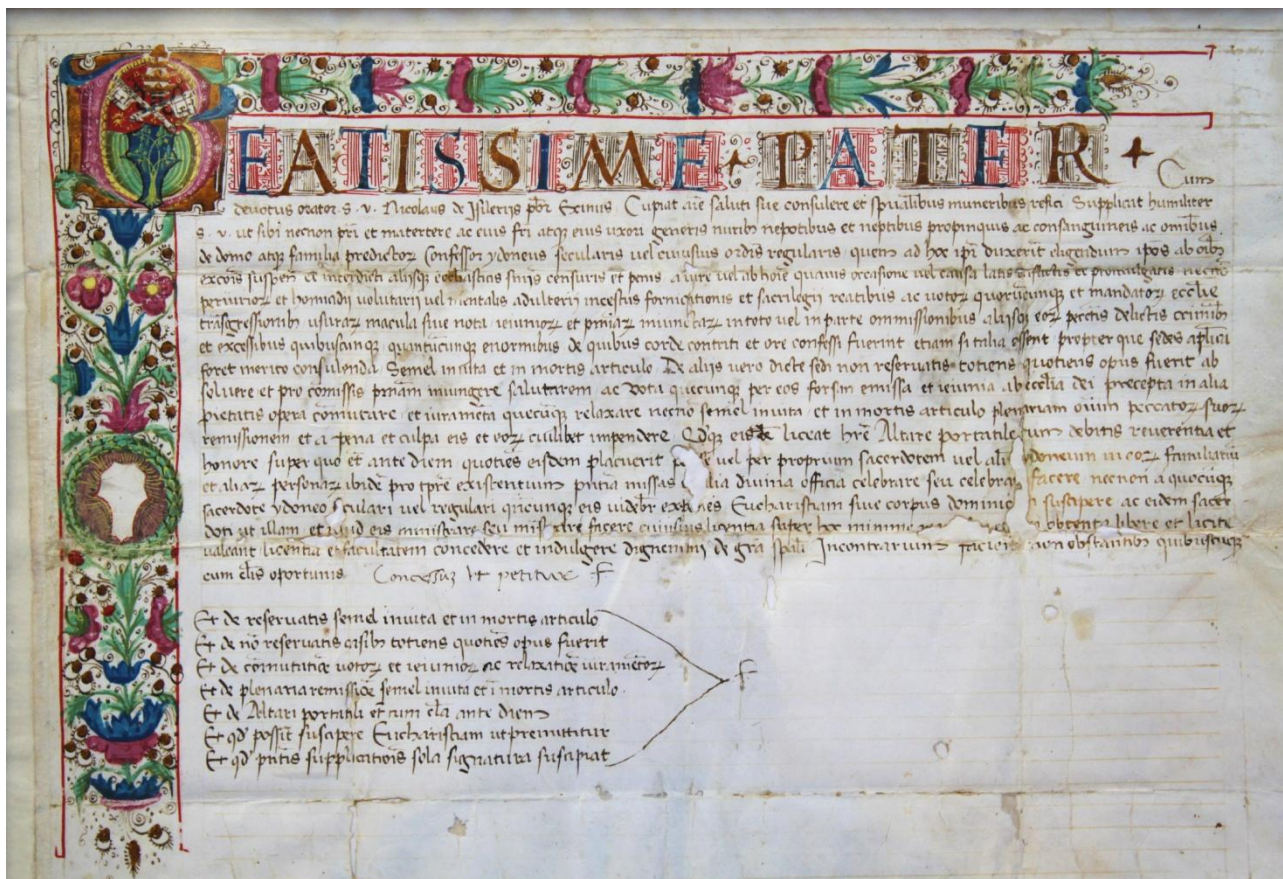 BEATISSIME + PATER +
Cum
devotus orator s. v. Nicolaus de
Cupiat aīe saluti sue consulere et spūalibus muneribus refici Supplicat humiliter
s. v. ut sibi necnon pr̄i et matertere ac eius fr̄i atqꝫ eius uxori generis nuribꝫ nepotibus et neptibus propinquis ac consanguineis ac omnibꝫ
de domo atqꝫ familia predictoꝝ Confessor ydoneus secularis vel cuiusuis ordīs regularis quem ad hoc ip̄i duxerīt eligendum ip̄os ab
suspen̄ et interdicti aliisqꝫ censuris et penis a iure vel ab hōīe quauis occasione vel causa latis
periurioꝝ et homicidij volutarij vel mentalis adulterij incestus fornicationis et sacrilegij reatibus ac votoꝝ quorūcunqꝫ et mandatoꝝ eccl̄ie
trāsgressionibꝫ usuraꝝ macula siue nota ieiunioꝝ et pn̄iaꝝ iniunctaꝝ in toto vel in parte ommissionibus aliisqꝫ eoꝝ peccātis delictis criminibꝫ
et excessibus quibuscunqꝫ quantūcunqꝫ enormibus de quibus corde contriti et ore confessi fuerint etiam si talia essent propter que sedes apl̄ica
foret merito consulenda Semel in uita et in mortis articulo De aliis vero dicte sedi non reseruatis totiens quotiens opus fuerit ab
soluere et pro comissis pn̄iam iniungere salutarem ac vota quecunqꝫ per eos forsan emissa et ieiunia ab ecclīa dei precepta in alia
pietatis opera comutare et iuramēta quecūqꝫ relaxare necnō semel in uita et in mortis articulo plenariam oīum peccatoꝝ suoꝝ
remissionem et a pena et culpa eis et eoꝝ cuilibet impendere eis liceat hr̄e Altare portatile cum debitis reverentia et
honore super quo et ante diem quotiēs eisdem placuerit vel per proprium sacerdotem vel
et aliaꝝ personaꝝ ibidē pro tpr̄e existentium pn̄tia missas alia diuina officia celebrare seu facere necnon a quocūqꝫ
sacerdote ydoneo seculari vel regulari Eucharistiam siue corpus suscipere ac eidem sacer
doti ut illam eis ministrare seu facere licentia super hoc minime obtenta libere et licite
valeant licentiā et facultatem concedere et indulgere dignemini de gr̄a sp̄ali Incontrarium non obstantibꝫ quibuscūqꝫ
cum cl̄is oportunis Concessum ut petitur f
Et de reseruatis semel in uita et in mortis articulo
Et de nō reseruatis casibꝫ totiens quotiēs opus fuerit
Et de cōmutatiōe votoꝝ et ieiunioꝝ ac relaxatiōe iuramētoꝝ
Et de plenaria remissiōe semel in uita et ī mortis articulo
Et de Altari portatili et cum cl̄a ante diem
Et qd̄ possīt suscipere Eucharistiam ut premittitur
Et qd̄ pn̄tis supplicatiōis sola signatura sufficiat
f